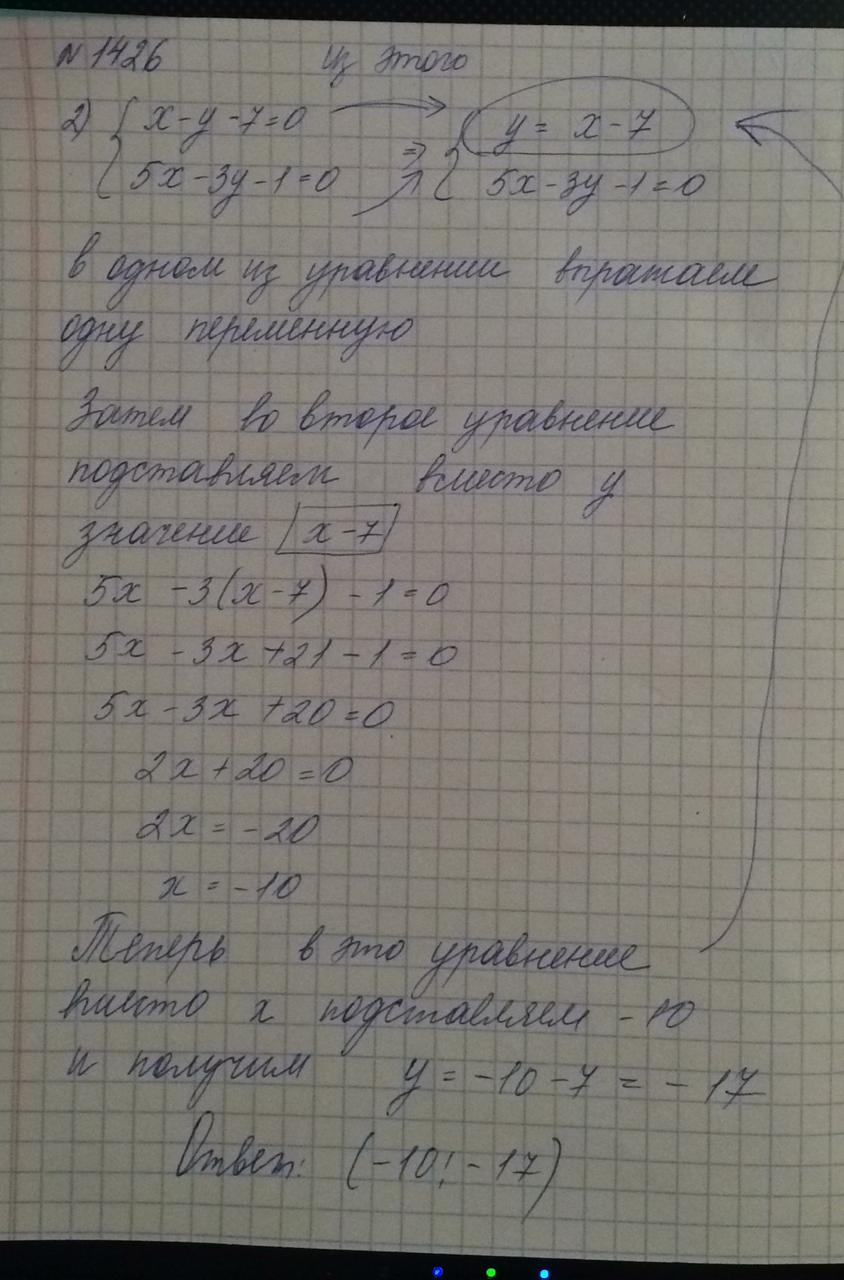 N 1426 из этого
2) { x-y-7=0 → { y = x-7
5x-3y-1=0 ⇒ 5x-3y-1=0
в одном из уравнении выражаем
одну переменную
Затем во второе уравнение
подставляем вместо y
значение x-7
5x -3(x-7) -1=0
5x -3x +21-1=0
5x-3x +20=0
2x+20=0
2x = -20
x = -10
Теперь в это уравнение
вместо x подставляем -10
и получим y = -10-7 = -17
Ответ: (-10; -17)